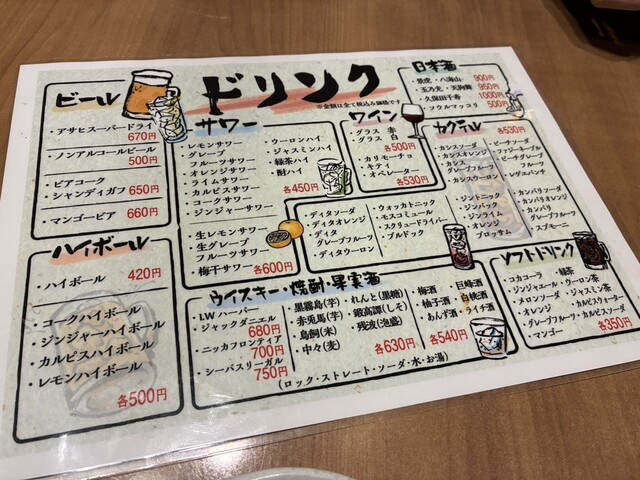 ドリンク
※金額は全て税込み価格です
ビール
・アサヒスーパードライ
670円
・ノンアルコールビール
500円
・ビアコーク
・シャンディガフ 650円
・マンゴービア 660円
ハイボール
・ハイボール 420円
・コークハイボール
・ジンジャーハイボール
・カルピスハイボール
・レモンハイボール
各500円
サワー
・レモンサワー
・グレープ
フルーツサワー
・オレンジサワー
・ライムサワー
・カルピスサワー
・コークサワー
・ジンジャーサワー
・ウーロンハイ
・ジャスミンハイ
・緑茶ハイ
・酎ハイ
各450円
・生レモンサワー
・生グレープ
フルーツサワー
・梅干サワー 各600円
ワイン
・グラス 赤
・グラス 白
各500円
・カリモーチョ
・キティ
・オペレーター
各530円
日本酒
・八海山 900円
・玉乃光 ・天狗舞 950円
・久保田千寿 1000円
・ソウルマッコリ 500円
カクテル
各530円
・カシスソーダ
・カシスオレンジ
・カシス
グレープフルーツ
・カシスウーロン
・ピーチソーダ
・ファジーネーブル
・ピーチグレープ
フルーツ
・レゲエパンチ
・ディタソーダ
・ディタオレンジ
・ディタ
グレープフルーツ
・ディタウーロン
・ウォッカトニック
・モスコミュール
・スクリュードライバー
・ブルドック
・ジントニック
・ジンバック
・ジンライム
・オレンジ
ブロッサム
・カンパリソーダ
・カンパリオレンジ
・カンパリ
グレープフルーツ
・スプモーニ
ウイスキー・焼酎・果実酒
・I.W ハーパー
・ジャックダニエル
680円
・ニッカフロンティア
700円
・シーバスリーガル
750円
・黒霧島(芋)
・赤兎馬(芋)
・鳥飼(米)
・中々(麦)
・れんと(黒糖)
・鍛高譚(しそ)
・残波(泡盛)
各630円
・梅酒
・柚子酒
・あんず酒
・巨峰酒
・白桃酒
・ライチ酒
各540円
(ロック・ストレート・ソーダ・水・お湯)
ソフトドリンク
・コカコーラ
・ジンジャエール
・メロンソーダ
・オレンジ
・グレープフルーツ
・マンゴー
・緑茶
・ウーロン茶
・ジャスミン茶
・カルピスウォーター
・カルピスソーダ
各350円